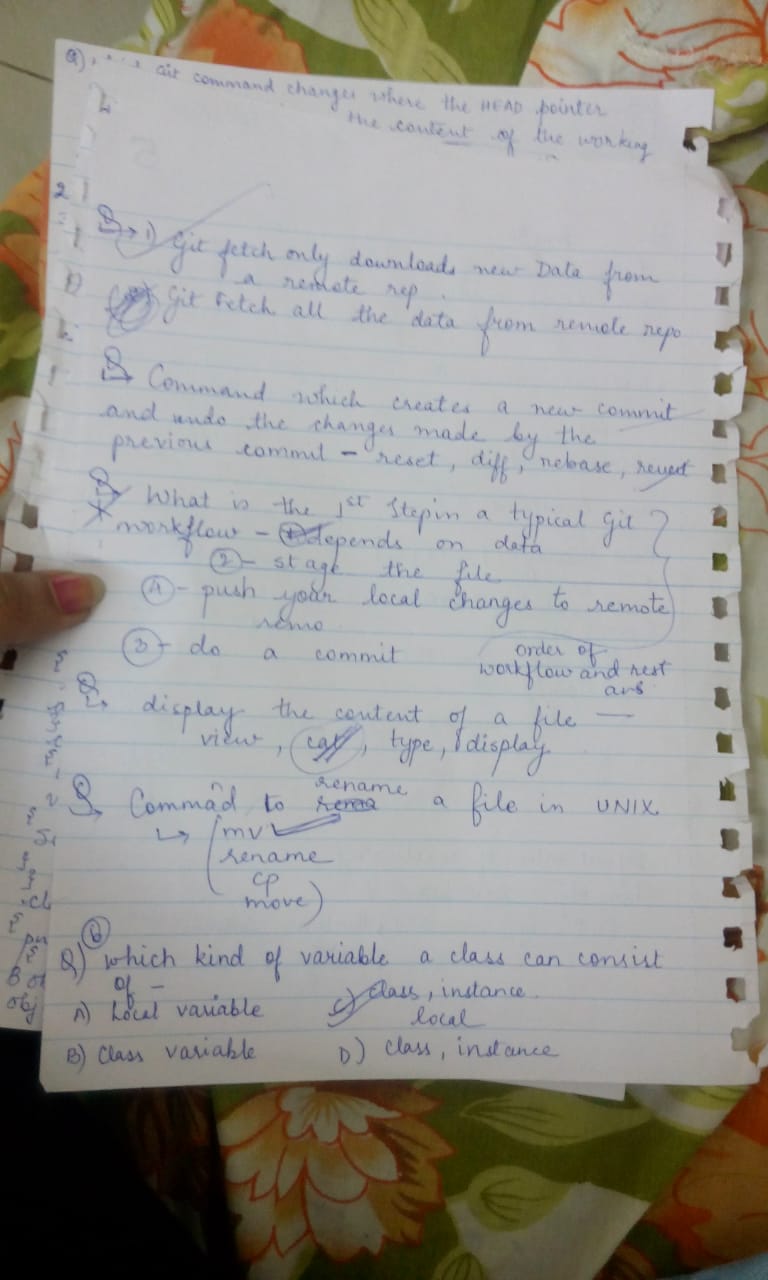 Q) Git command changes where the HEAD pointer
the content of the working
2
Q→ 1) Git fetch only downloads new Data from
a remote rep.
Git Fetch all the data from remote repo
Q Command which creates a new commit
and undo the changes made by the
previous commit - reset, diff, rebase, revert
Q What is the 1st Step in a typical Git
workflow - depends on data
② - stage the file
④ - push your local changes to remote
remo
③ - do a commit
order of
workflow and rest
ans
Q display the content of a file —
view, cat, type, display
rename
Q Command to a file in UNIX.
↳ (mv
rename
cp
move)
6
Q) which kind of variable a class can consist
of -
A) Local variable C) class, instance
local
B) Class variable D) class, instance